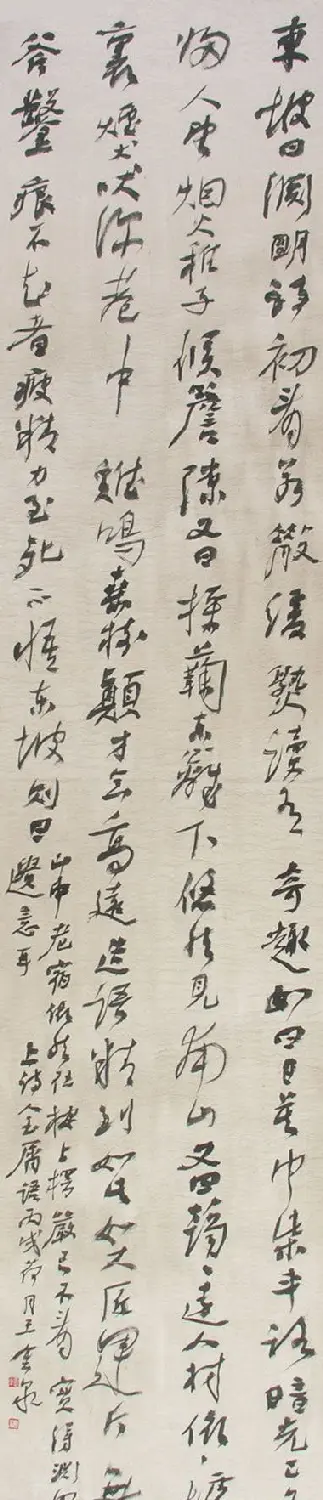 東坡曰淵明詩初看若散緩熟讀有奇趣如曰日暮巾柴車路暗光已
歸人望烟火稚子候簷隙又曰採菊東籬下悠然見南山又曰藹〻遠人村依〻墟
裏煙犬吠深巷中 雞鳴桑樹顛才意高遠造語精到如此如大匠運斤無
斧鑿痕不知者疲精力至死不悟東坡則曰
山中老宿依然在案上楞嚴已不看 實得淵明
遺意耳
上詩金屑語丙戌荷月王